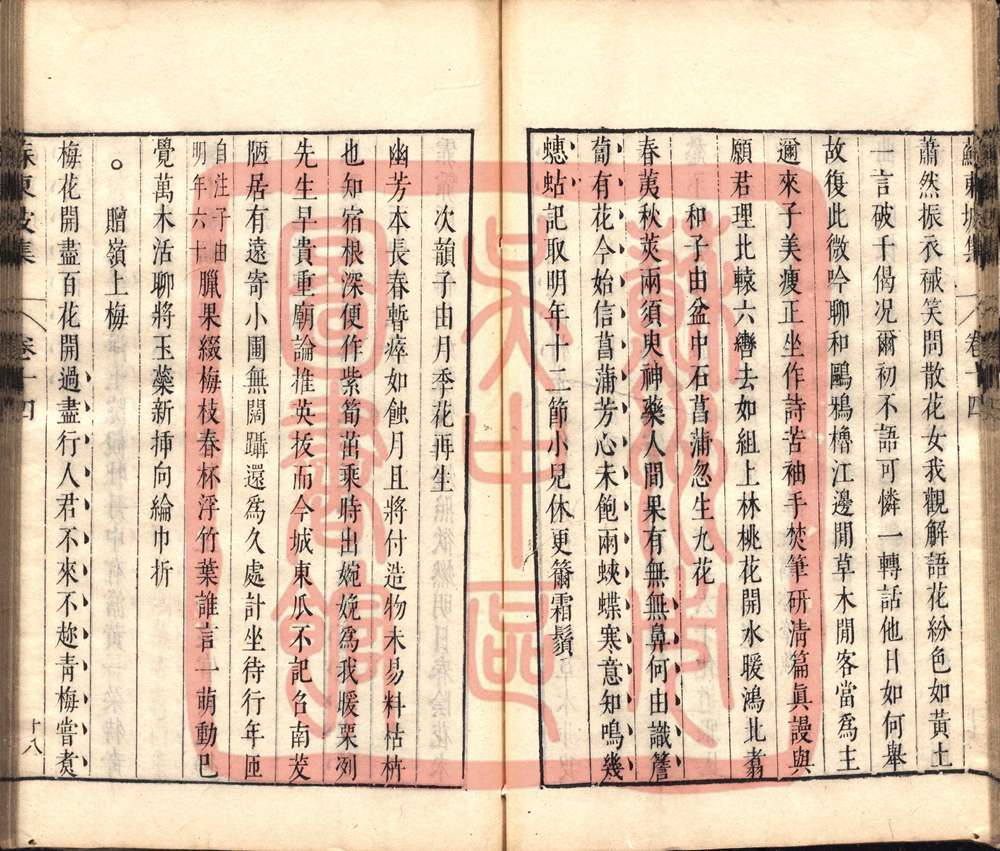 蘇東坡集 卷十四
蕭然振衣裓笑問散花女我觀解語花紛色如黃土
一言破千偈况爾初不語可憐一轉話他日如何舉
故復此微吟聊和鷗鴉櫓江邊閒草木閒客當爲主
邇來子美瘦正坐作詩苦袖手焚筆硏清篇眞謾與
願君理北轅六轡去如組上林桃花開水暖鴻北翥
和子由盆中石菖蒲忽生九花
春荑秋莢兩須臾神藥人間果有無無鼻何由識薝
蔔有花今始信菖蒲芳心未飽兩蛺蝶寒意知鳴幾
蟪蛄記取明年十二節小兒休更籋霜鬚
次韻子由月季花再生
幽芳本長春暫瘁如蝕月且將付造物未易料枯枿
也知宿根深便作紫筍茁乘時出婉娩爲我暖栗冽
先生早貴重廟論推英拔而今城東瓜不記召南茇
陋居有遠寄小圃無闊躡還爲久處計坐待行年匝
自注子由
明年六十
臘果綴梅枝春杯浮竹葉誰言一萌動已
覺萬木活聊將玉蘂新揷向綸巾折
。贈嶺上梅
梅花開盡百花開過盡行人君不來不趂靑梅嘗煮
蘇東坡集 卷十四
十八
蘇州市
吳中區
圖書館